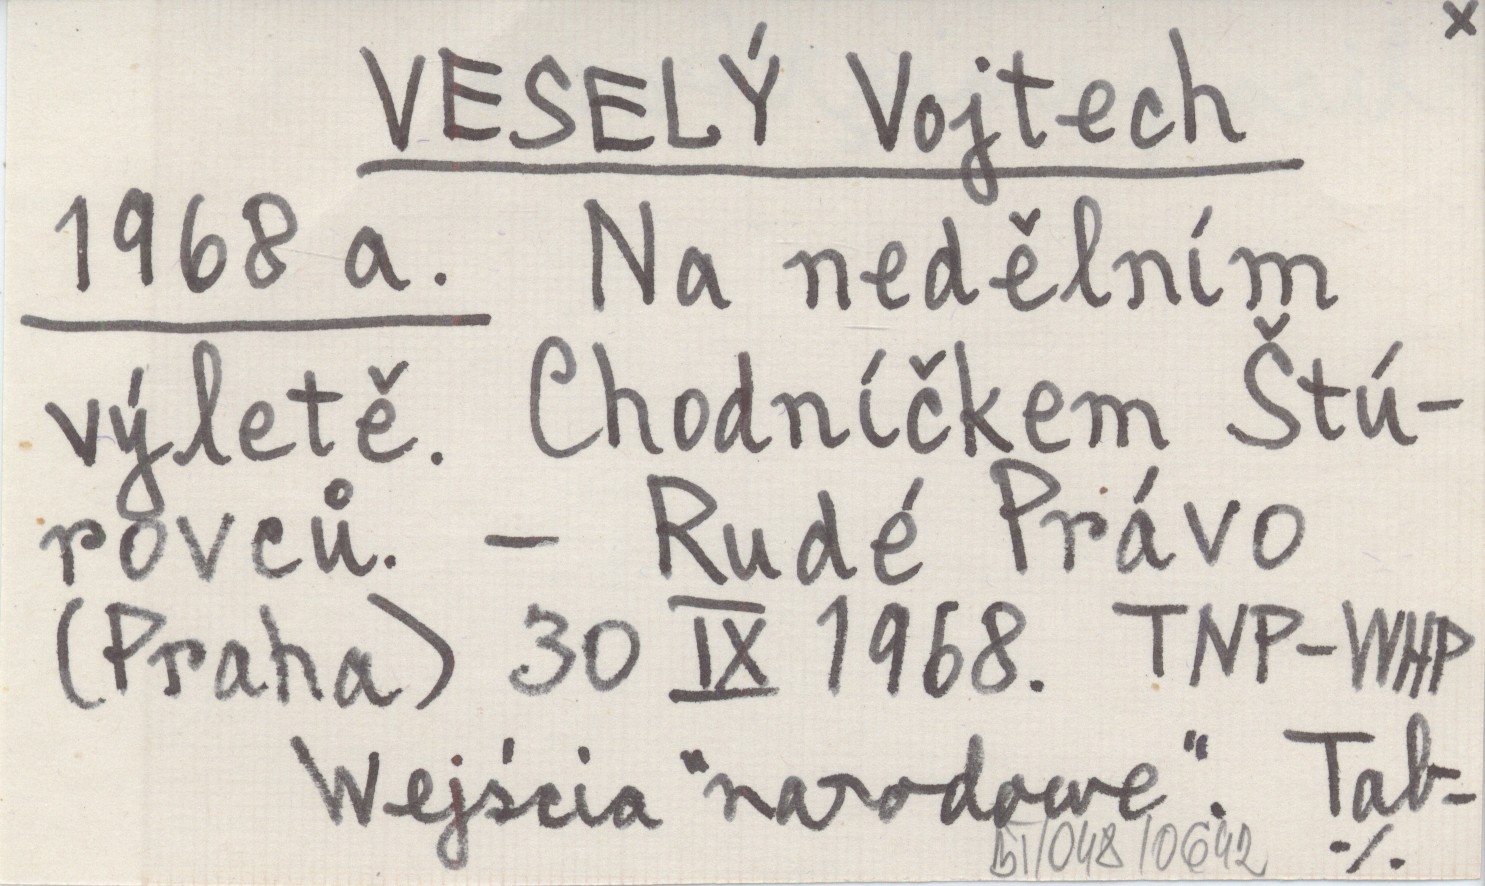 x
VESELÝ Vojtech
1968 a. Na nedělním
výletě. Chodníčkem Štú-
rovců. – Rudé Právo
(Praha) 30 IX 1968. TNP-WHP
Wejścia "narodowe". Tab-
BT/048/0642 -/.